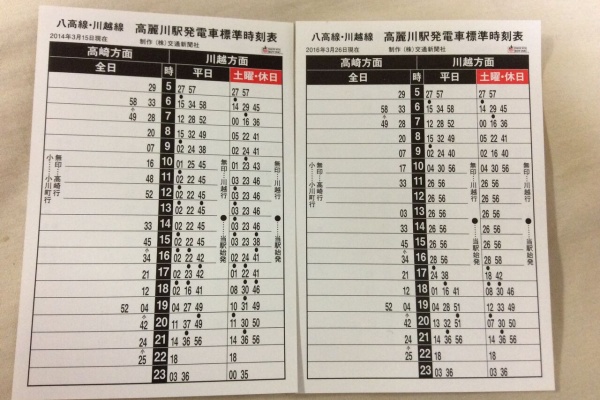 八高線・川越線 高麗川駅発電車標準時刻表
2014年3月15日現在 制作 (株)交通新聞社
高崎方面 川越方面
全日 時 平日 土曜・休日
29 5 27 57 27 57
58 33 6 15 34 58 14 29 45
49 28 7 12 28 52 00 16 36
20 8 15 32 49 05 22 41
07 9 02 24 40 02 24 41
16 10 01 25 45 01 23 43
48 11 02 22 45 03 23 46
52 12 02 22 45 03 23 46
13 02 22 45 03 23 46
33 14 02 22 45 03 23 46
45 15 02 22 45 03 23 38
34 16 02 22 45 02 22 41
21 17 02 23 42 01 22 41
12 18 02 16 41 08 30 46
52 04 19 04 27 49 10 31 49
42 20 11 37 49 11 30 50
24 21 14 36 56 14 36 56
25 22 18 18
23 03 36 00 35
無印…高崎行
小…小川町行
無印…川越行
●…当駅始発
無印…川越行
●…当駅始発
八高線・川越線 高麗川駅発電車標準時刻表
2016年3月26日現在 制作 (株)交通新聞社
高崎方面 川越方面
全日 時 平日 土曜・休日
29 5 27 57 27 57
58 33 6 15 34 58 14 29 45
49 28 7 12 28 52 00 16 36
20 8 15 32 49 05 22 41
07 9 02 24 40 02 16 40
17 10 04 30 56 04 30 56
33 11 26 56 26 56
12 26 56 26 56
03 13 26 56 26 56
33 14 26 56 26 56
45 15 26 56 26 58
34 16 28 56 28 56
21 17 24 38 18 42
12 18 01 16 41 08 30 46
52 04 19 04 28 51 12 33 49
42 20 13 32 51 07 30 50
21 21 14 36 56 14 36 56
25 22 18 18
23 03 36 03 36
無印…高崎行
小…小川町行
無印…川越行
●…当駅始発
無印…川越行
●…当駅始発